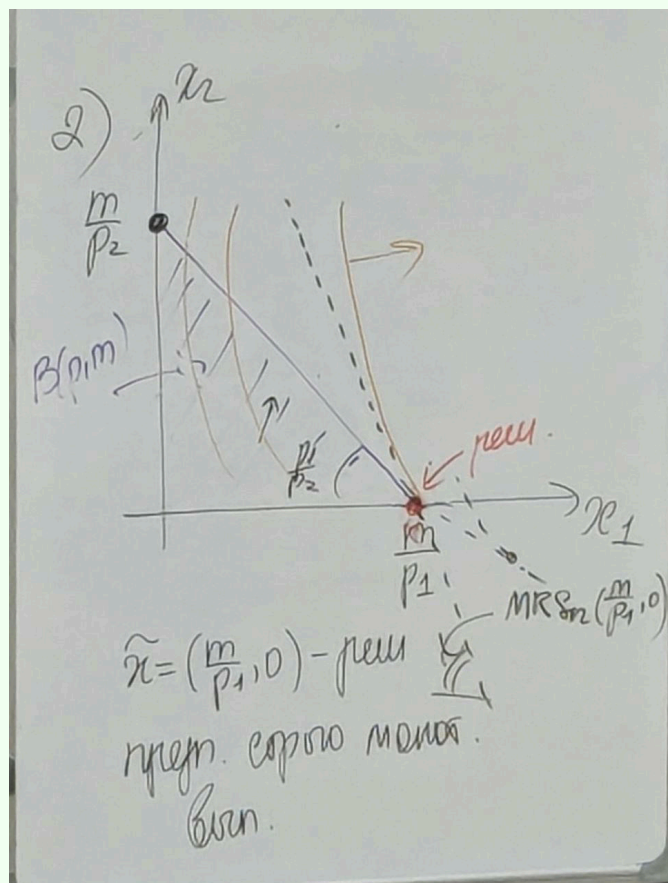 2)
x₂
m/p₂
B(p,m)
p₁/p₂
реш.
x₁
m/p₁
MRS₁₂(m/p₁,0)
x̃=(m/p₁,0) – реш
предп. строго монот.
вып.